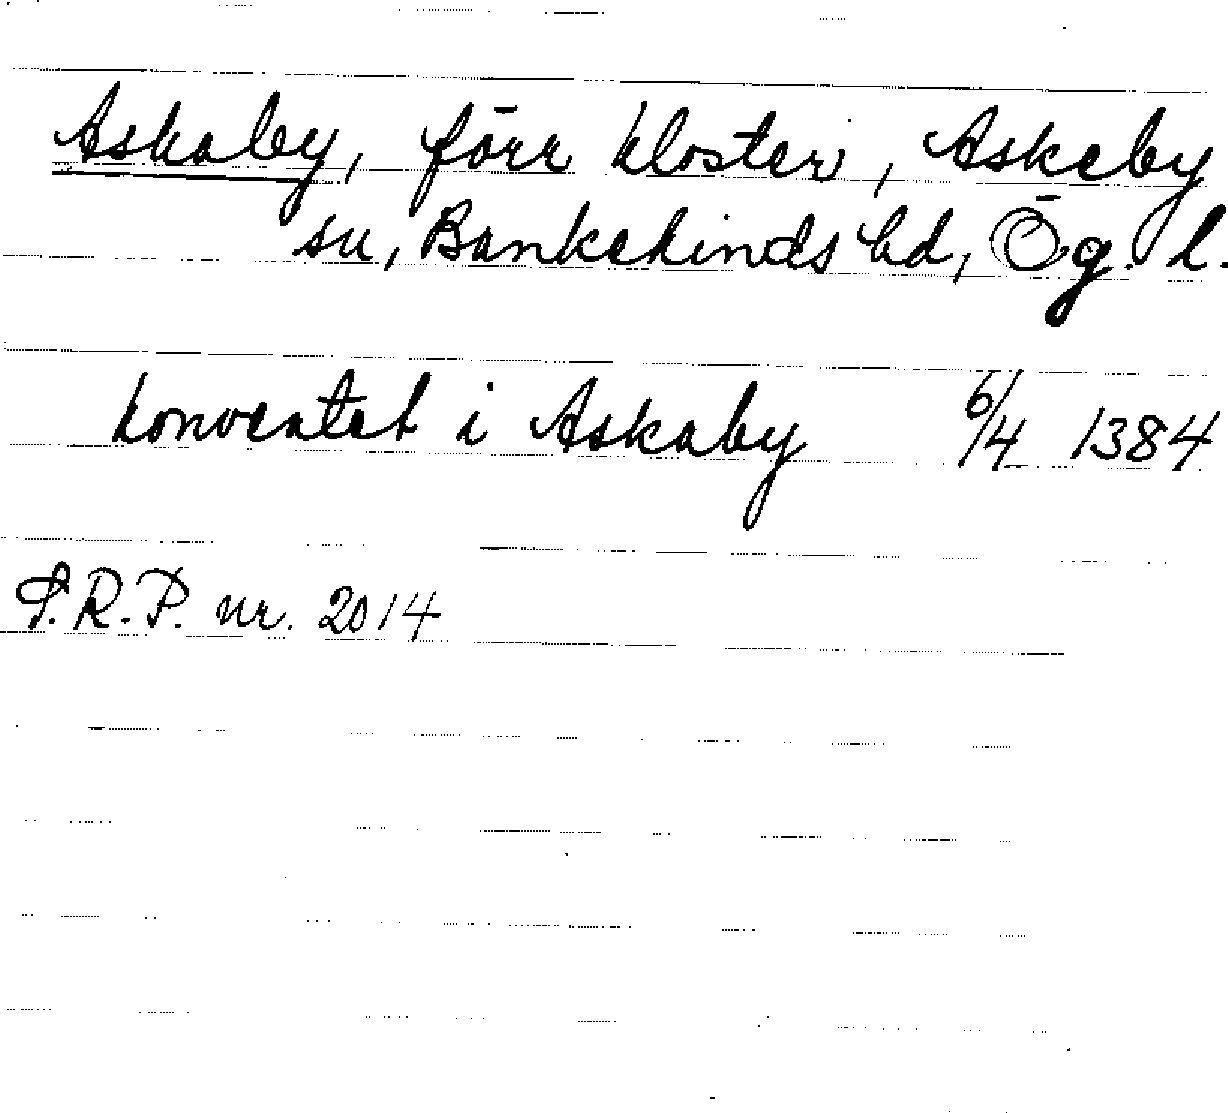 Askaby, förr kloster, Askeby
sn, Bankekinds hd, Ög. l.
konventet i Askaby 6/4 1384
S.R.P. nr. 2014